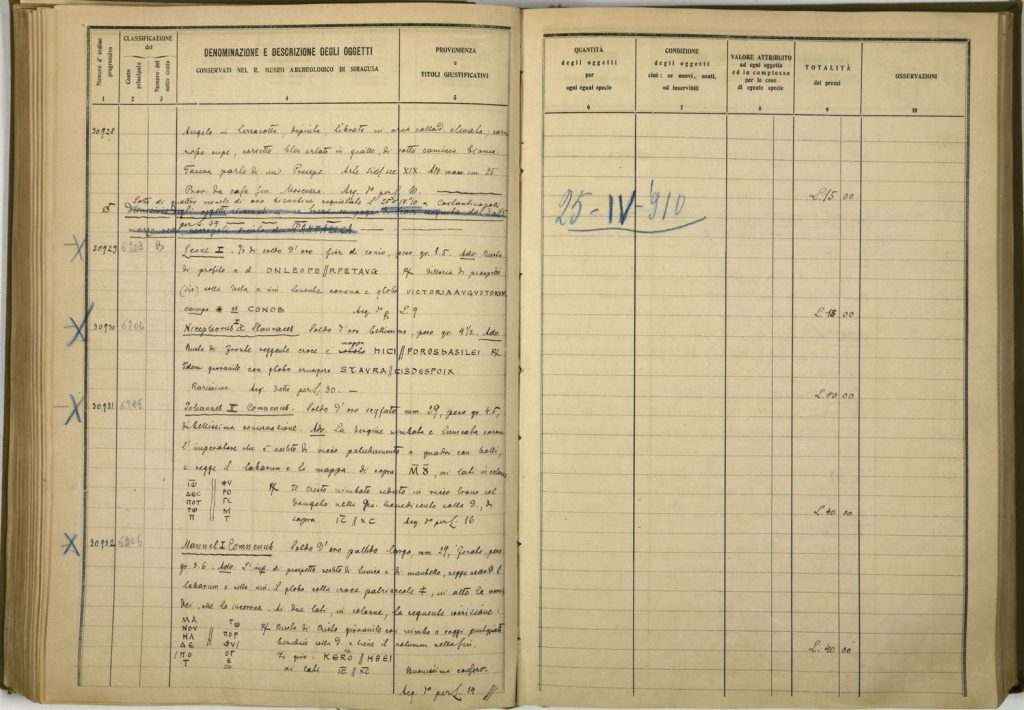 Numero d'ordine progressivo
CLASSIFICAZIONE
del
Conto principale
Numero del sotto conto
DENOMINAZIONE E DESCRIZIONE DEGLI OGGETTI
CONSERVATI NEL R. MUSEO ARCHEOLOGICO DI SIRACUSA
PROVENIENZA
e
TITOLI GIUSTIFICATIVI
1 2 3 4 5
QUANTITÀ
degli oggetti
per
ogni egual specie
CONDIZIONE
degli oggetti
cioè: se nuovi, usati,
od inservibili
VALORE ATTRIBUITO
ad ogni oggetto
ed in complesso
per le cose
di eguale specie
TOTALITÀ
dei prezzi
OSSERVAZIONI
6 7 8 9 10
30928 Angelo in terracotta, dipinta, librato in aria colla d. elevata;
di sotto camicia bianca.
Faceva parte di un Presepe. Arte XIX. Alt. mass. cm. 25.
Prov. da casa Acq. per L. 10.
L. 15 00
Lotto di quattro monete di oro bizantine, acquistate il 25 IV 910 a Costantinopoli
per L. 69
PANTALICA
25-IV-910
30929 6203 B Leone I. di soldo d'oro fior di conio, peso gr. 1.5. Adv. Busto
di profilo a d. DNLEOPE//RPETAVG R/ Vittoria di prospetto
colla testa a sin. tenente corona e globo VICTORIA AVGVSTORVM
campo * CONOB Acq. L. 9
L. 15 00
30930 6204 Nicephorus I e Stauraces Soldo d'oro bellissimo, peso gr. 4 1/2. Adv.
Busto di fronte reggente croce e mappa NICI//FOROSBASILEI R/
Idem giovanile con globo crucigero STAVRA//CISDESPOIX
Rarissimo. Acq. detto per L. 30. —
L. 80 00
30931 6205 Iohannes II Comnenus. Soldo d'oro scyfato mm. 29, peso gr. 4.5,
di bellissima conservazione. Adv. La Vergine nimbata e tunicata corona
l'imperatore che è vestito di ricco paludamento a quadri con
e regge il labarum e la mappa. di sopra M Θ, ai lati in colonne
ΙΩ // ΦV R/ Il Cristo nimbato seduto in ricco trono col
ΔΕC // ΡΟ Vangelo nella sin. benedicente colla d., di
ΠΟΤ // ΓΕ sopra IC // XC Acq. per L. 16
ΤΩ // Μ
Π // Τ
L. 40 00
30932 6206 Manuel I Comnenus Soldo d'oro pallido largo, mm. 29, forato, peso
gr. 3.6. Adv. L'imp. di prospetto vestito di tunica e di mantello, regge nella d. il
labarum e nella sin. il globo colla croce patriarcale ‡, in alto la mano
dei, che lo incorona. Ai due lati, in colonne, la seguente iscrizione:
ΜΑ // ΤΩ R/ Busto di Cristo giovanile con nimbo a raggi punteggiati
ΝΟV // ΠΟΡ benedice colla d. e tiene il volumen nella sin.
ΗΛ // ΦV/ In giro: KERO // HΘEI
ΔΕ // ΟΓ ai lati IC // XC Buonissima conserv.
/ΠΟ // Ε
Τ
Acq. per L. 14
L. 40 00